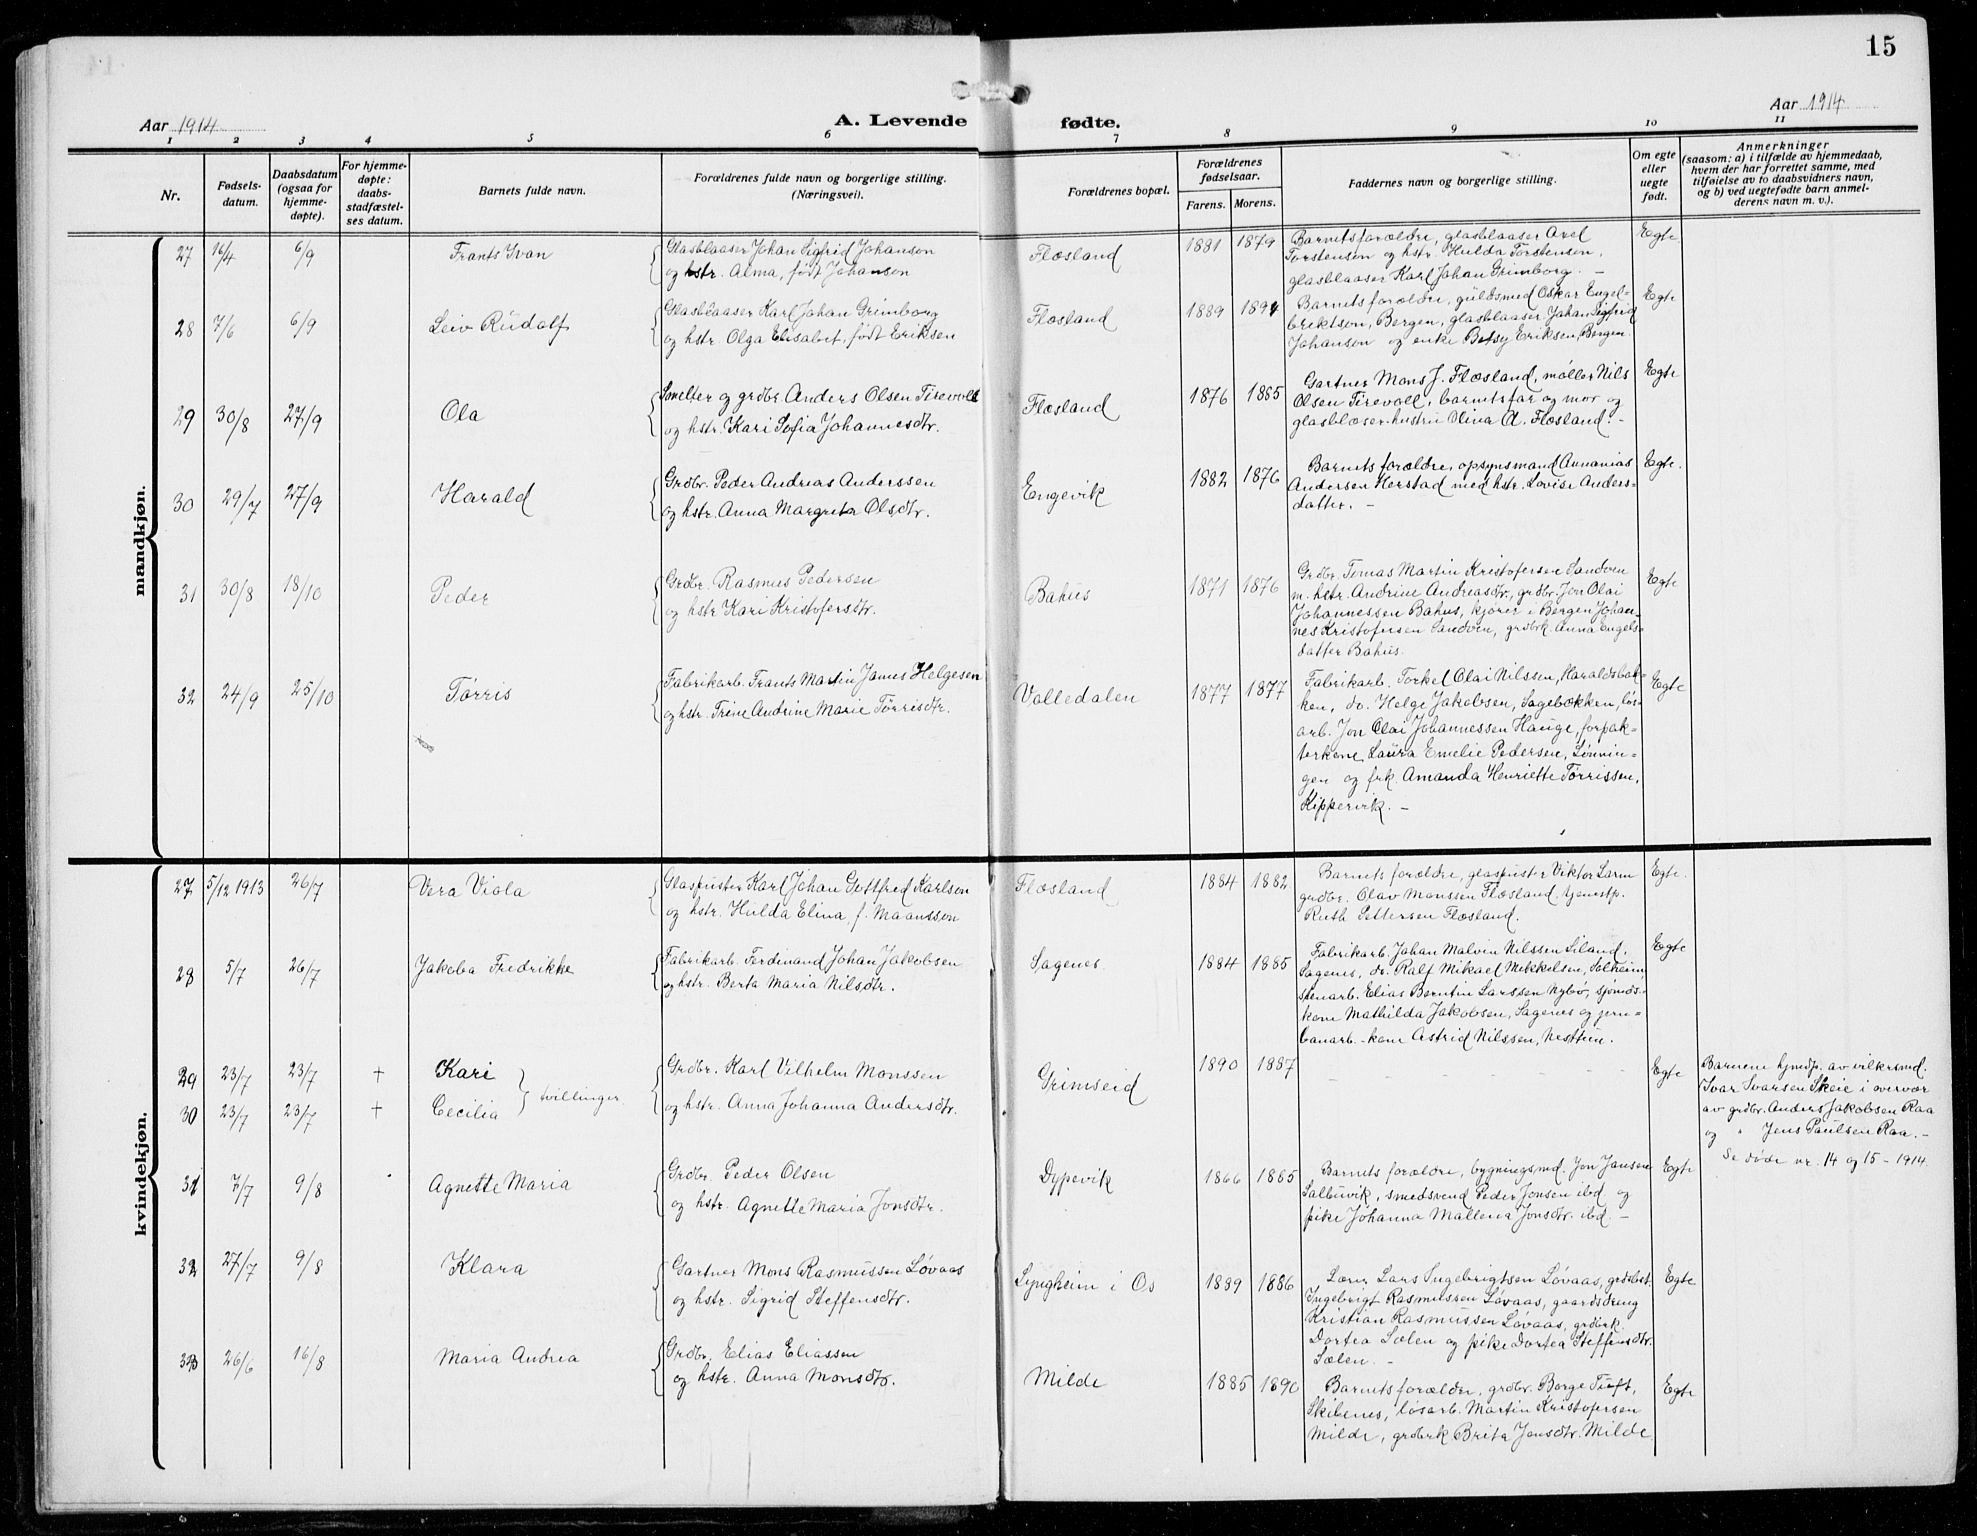 15
Aar 1914
A. Levende fødte.
Aar 1914
1 2 3 4 5 6 7 8 9 10 11
Nr.
Fødsels-
datum.
Daabsdatum
(ogsaa for
hjemme-
døpte).
For hjemme-
døpte:
daabs-
stadfæstel-
ses datum.
Barnets fulde navn.
Forældrenes fulde navn og borgerlige stilling.
(Næringsvei).
Forældrenes bopæl.
Forældrenes
fødselsaar.
Farens. Morens.
Faddernes navn og borgerlige stilling.
Om egte
eller
uegte
født.
Anmerkninger
(saasom: a) i tilfælde av hjemmedaab,
hvem der har forrettet samme, med
tilføielse av to daabsvidners navn,
og b) ved uegtefødte barn anmel-
derens navn m. v.).
mandkjøn.
27 16/4 6/9 Frants Ivan
Glasblaaser Johan Sigfrid Johanson
og hstr. Alma, født Johanson
Flæsland 1881 1879
Barnets forældre, glasblaaser Axel
Torstenson og hstr. Hulda Torstensen,
glasblaaser Karl Johan Grimborg. –
Egte
28 7/6 6/9 Leiv Rudolf
Glasblaaser Karl Johan Grimborg
og hstr. Olga Elisabet, født Eriksen
Flæsland 1889 1894
Barnets forældre, guldsmed Oskar Engel-
brektson, Bergen, glasblaaser Johan Sigfrid
Johanson og enke Betsy Eriksen, Bergen.
Egte
29 30/8 27/9 Ola
Smelter og grdbr. Anders Olsen Tirevoll
og hstr. Kari Sofia Johannesdtr.
Flæsland 1876 1885
Gartner Mons J. Flæsland, møller Nils
Olsen Tirevoll, barnets far og mor og
glasblæser-hustru Olina A. Flæsland. –
Egte
30 29/7 27/9 Harald
Grdbr. Peder Andreas Anderssen
og hstr. Anna Margreta Olsdtr.
Engevik 1882 1876
Barnets forældre, opsynsmand Annanias
Andersen Herstad med hstr. Lovise Anders-
datter. –
Egte.
31 30/8 18/10 Peder
Grdbr. Rasmus Pedersen
og hstr Kari Kristofersdtr.
Bahus 1871 1876
Grdbr. Tomas Martin Kristofersen Sandven
m. hstr. Andrine Andreasdtr., grdbr. Jon Olai
Johannessen Bahus, kjører i Bergen Johan-
nes Kristofersen Sandven, grdbrk. Anna Engels-
datter Bahus.
Egte
32 24/9 25/10 Tørris
Fabrikarb. Frants Martin James Helgesen
og hstr. Trine Andrine Marie Tørrisdtr.
Valledalen 1877 1877
Fabrikarb. Torkel Olai Nilssen, Haraldsbak-
ken, do. Helge Jakobsen, Sagebækken, løs-
arb. Jon Olai Johannessen Hauge, forpak-
terkone Laura Emelie Pedersen, Lønnin-
gen og frk. Amanda Henriette Tørrissen,
Kippervik. –
Egte
kvindekjøn.
27 5/12 1913 26/7 Vera Viola
Glaspuster Karl Johan Gottfred Karlson
og hstr. Hulda Elina, f. Maansson
Flæsland 1884 1882
Barnets forældre, glaspuster Viktor Larm
grdbr. Olav Monssen Flæsland, tjenestp.
Ruth Pettersen Flæsland.
Egte.
28 5/7 26/7 Jakoba Fredrikke
Fabrikarb. Ferdinand Johan Jakobsen
og hstr. Berta Maria Nilsdtr.
Sagenes 1884 1885
Fabrikarb. Johan Malvin Nilssen Siland,
Sagenes, do. Ralf Mikael Mikkelsen, Solheim,
stenarb. Elias Berntin Larssen Nybø, sjømds-
kone Mathilda Jakobsen, Sagenes og jern-
banarb.-kone Astrid Nilssen, Nesttun.
Egte
29 23/7 23/7 + Kari
30 23/7 23/7 + Cecilia
tvillinger
Grdbr. Karl Vilhelm Monssen
og hstr. Anna Johanna Andersdtr.
Grimseid 1890 1887
– – – – –
Egte
Barnene hjmdp. av vilkrsmd.
Ivar Ivarsen Skeie i overvær
av grdbr. Anders Jakobsen Raa
og " Jens Paulsen Raa. –
Se døde nr. 14 og 15 – 1914.
31 7/7 9/8 Agnette Maria
Grdbr. Peder Olsen
og hstr. Agnette Maria Jonsdtr.
Dypevik 1866 1885
Barnets forældre, bygningsmd. Jon Jansen
Salbuvik, smedsvend Peder Jonsen ibd og
pike Johanna Mallena Jonsdtr. ibd. –
Egte
32 27/7 9/8 Klara
Gartner Mons Rasmussen Løvaas
og hstr. Sigrid Steffensdtr.
Lyngheim i Os 1889 1886
Lærer Lars Ingebrigtsen Løvaas, grdbest.
Ingebrigt Rasmussen Løvaas, gaardsdreng
Kristian Rasmussen Løvaas, grdbrk.
Dortea Sælen og pike Dortea Steffensdtr.
Sælen. –
Egte
33 26/6 16/8 Maria Andrea
Grdbr. Elias Eliassen
og hstr. Anna Monsdtr.
Milde 1885 1890
Barnets forældre, grdbr. Børge Tuft,
Skibenes, løsarb. Martin Kristofersen
Milde, grdbrk Brita Jensdtr. Milde
Egte